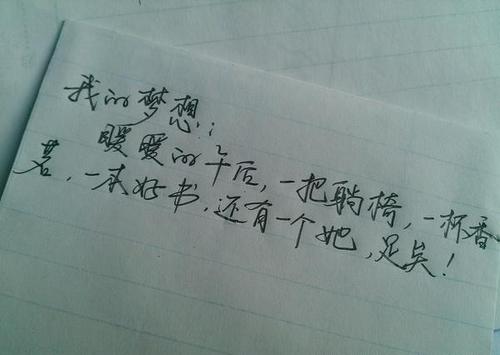 我的梦想：
暖暖的午后，一把躺椅，一杯香
茗，一本好书，还有一个她，足矣！